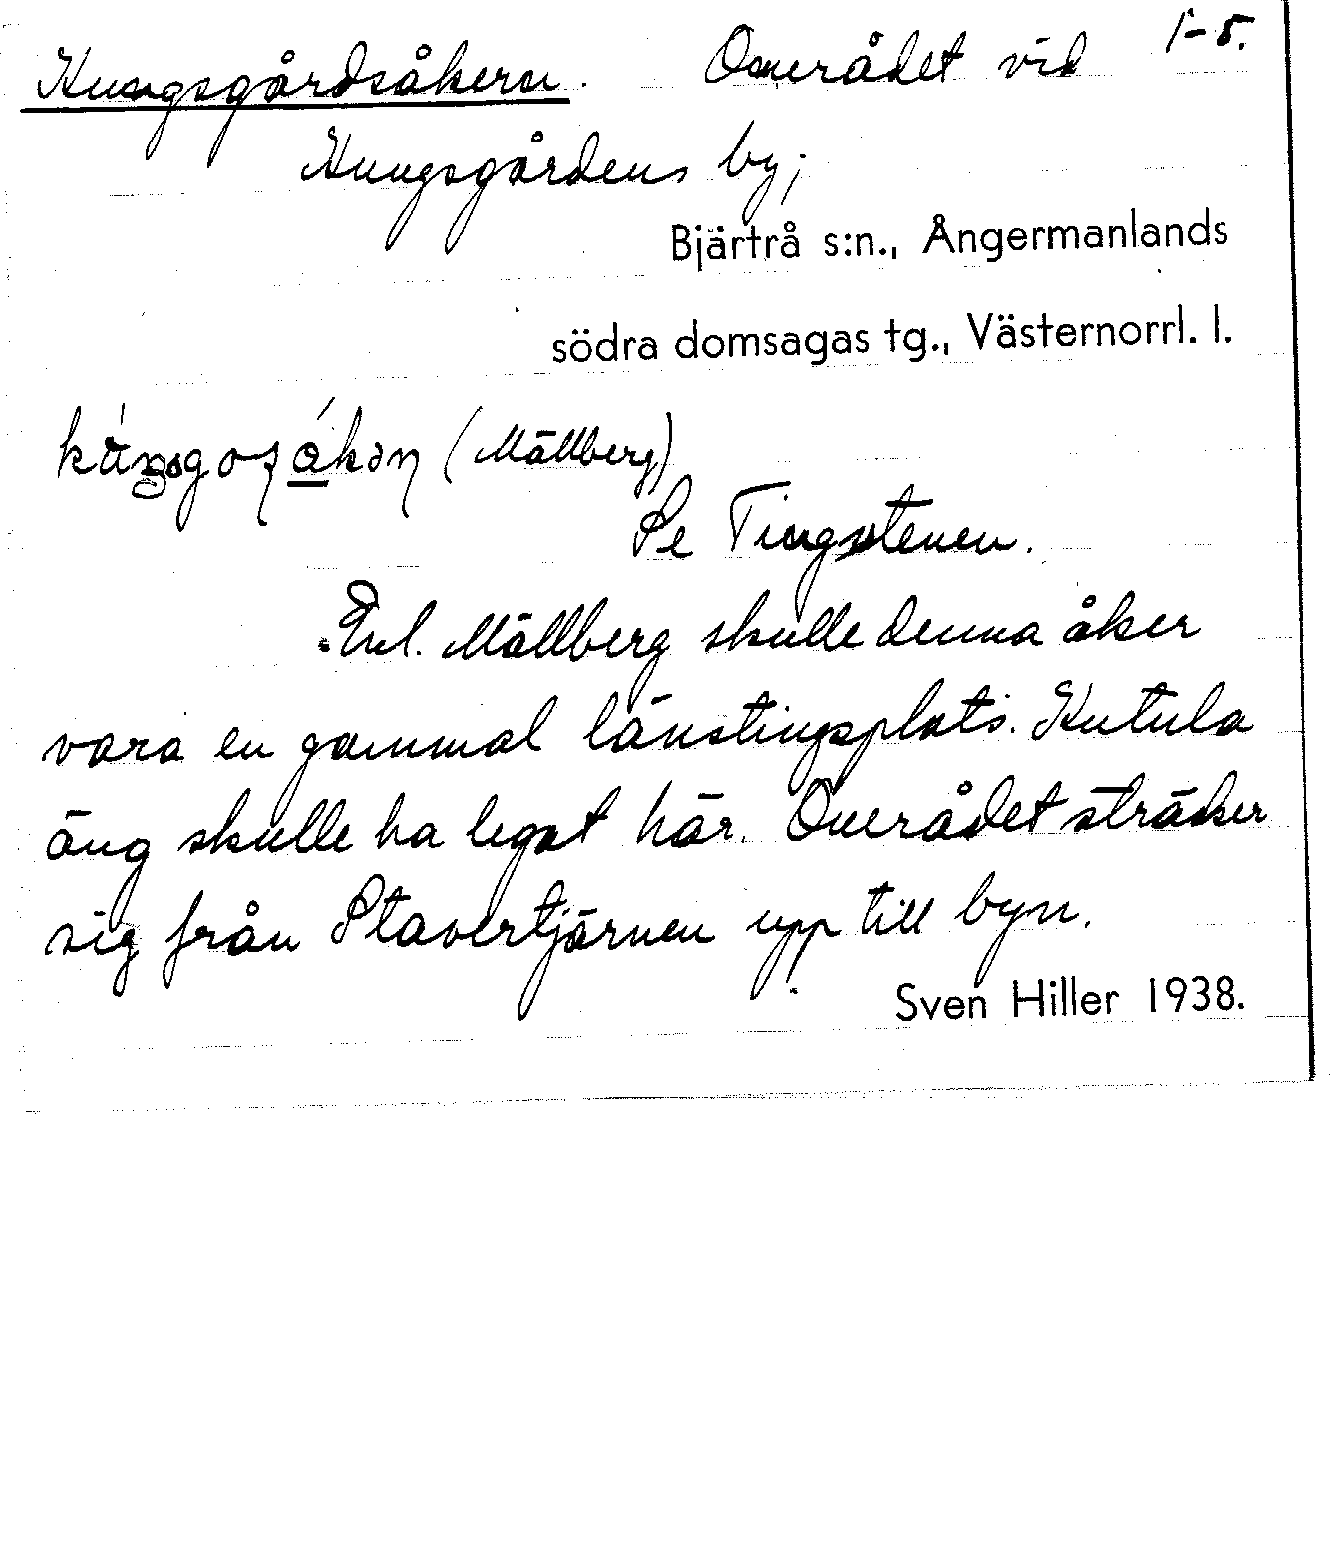 Kungsgårdsåkern. Området vid 1-5.
Kungsgårdens by;
Bjärtrå s:n., Ångermanlands
södra domsagas tg., Västernorrl. l.
(Mällberg)
Se Tingstenen.
Enl. Mällberg skulle denna åker
vara en gammal länstingsplats. Kutula
äng skulle ha legat här. Området sträcker
sig från Stavertjärnen upp till byn.
Sven Hiller 1938.